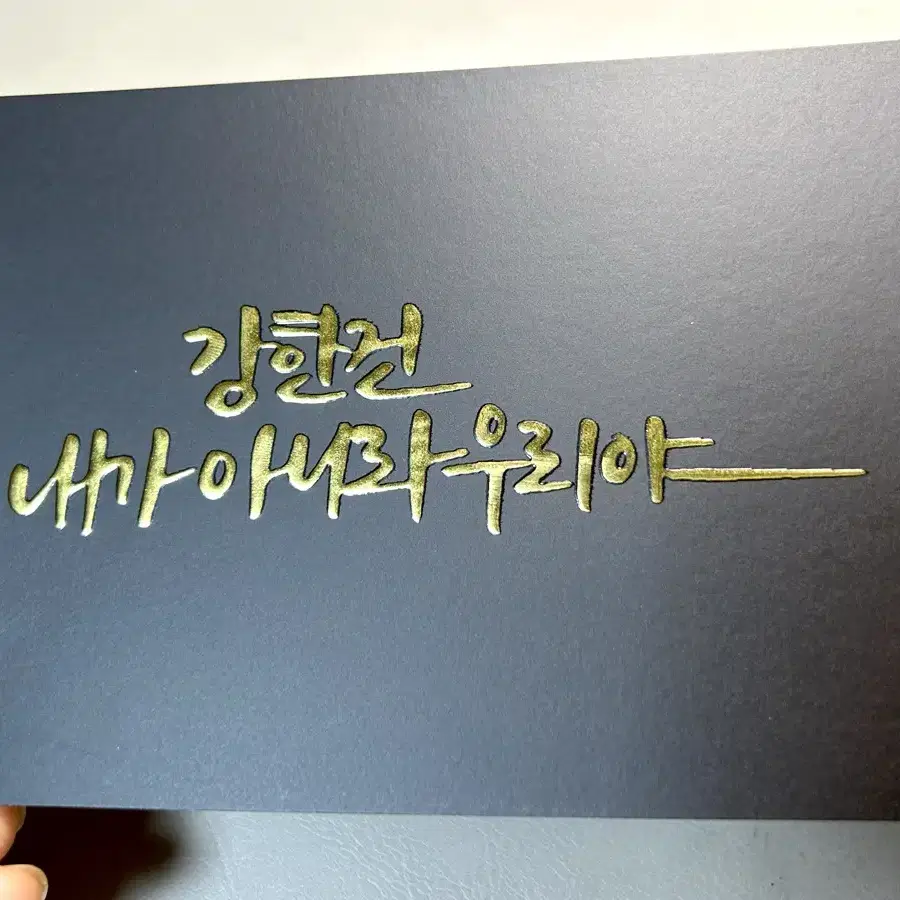 강한건
내가 아니라 우리야